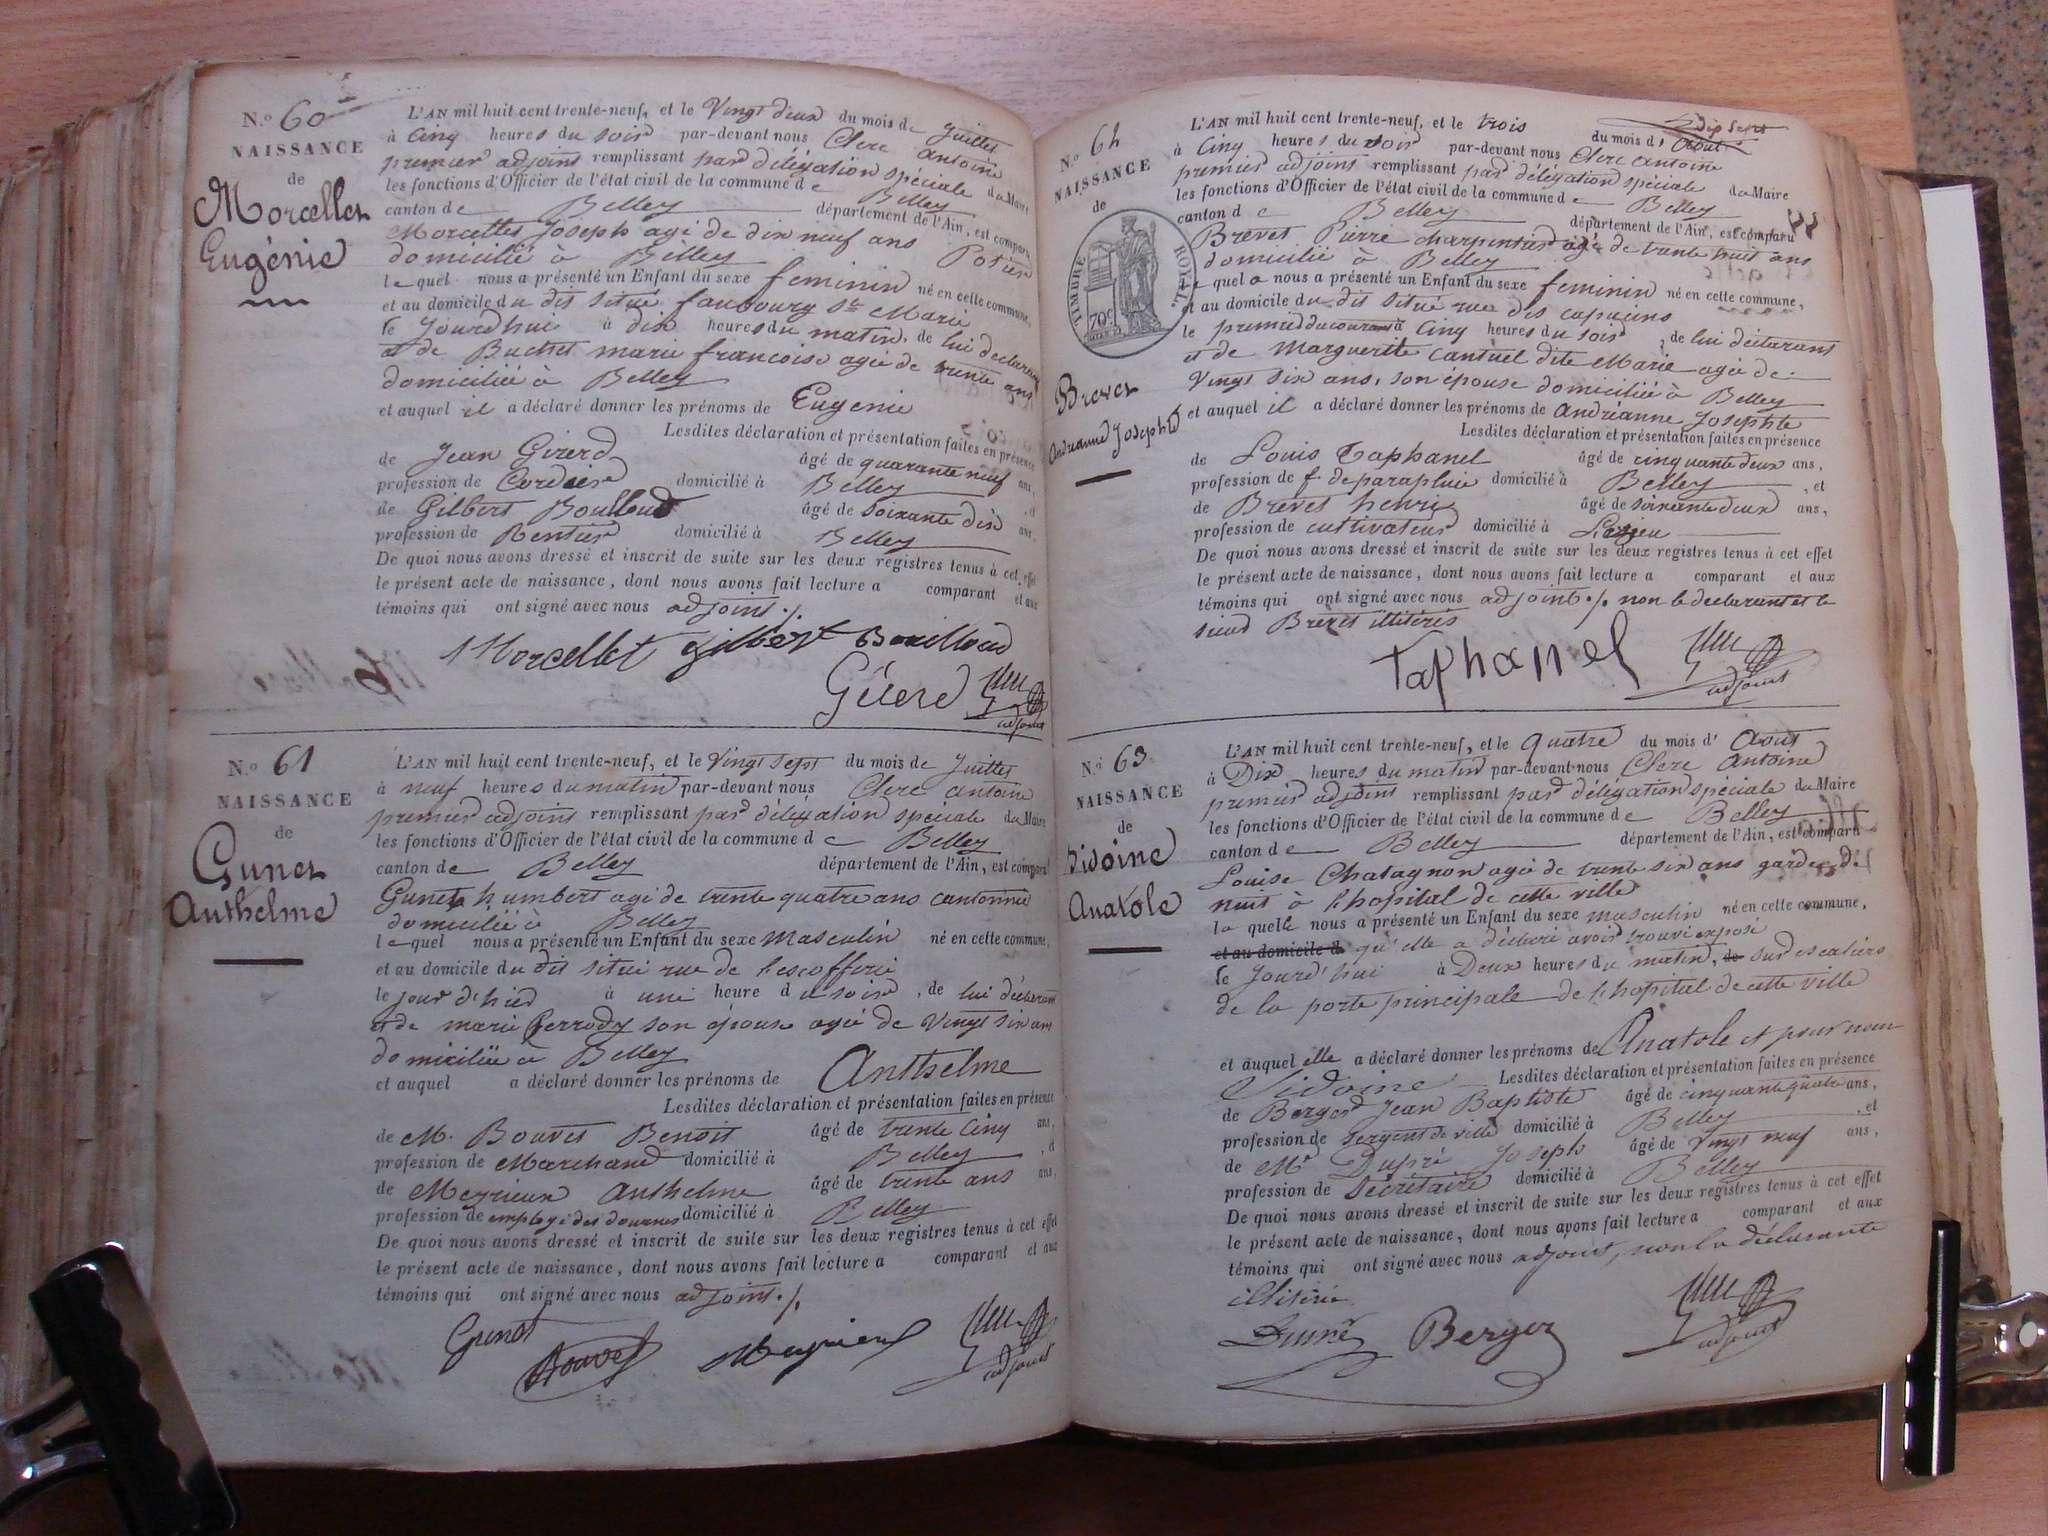 N.o 60
NAISSANCE
de
Morcellet
Eugénie
L'AN mil huit cent trente-neuf, et le Vingt deux du mois de Juillet
à Cinq heures du soir par-devant nous Clerc Antoine
premier adjoint remplissant par délégation spéciale du Maire
les fonctions d'Officier de l'état civil de la commune de Belley
canton de Belley département de l'Ain, est comparu
Morcellet Joseph agé de dix neuf ans Potier
domicilié à Belley
lequel nous a présenté un Enfant du sexe feminin né en cette commune,
et au domicile du dit situé faubourg St Marie
le Jourd'hui à dix heures du matin, de lui déclarant
et de Buchet marie francoise agée de trente ans
domiciliée à Belley
et auquel il a déclaré donner les prénoms de Eugenie
Lesdites déclaration et présentation faites en présence
de Jean Girerd âgé de quarante neuf ans,
profession de Cordier domicilié à Belley
de Gilbert Boulloud âgé de soixante dix ans,
profession de Rentier domicilié à Belley
De quoi nous avons dressé et inscrit de suite sur les deux registres tenus à cet effet
le présent acte de naissance, dont nous avons fait lecture a comparant et aux
témoins qui ont signé avec nous adjoint ./.
Morcellet Gilbert Boulloud
adjoint
N.o 61
NAISSANCE
de
Gunet
Anthelme
L'AN mil huit cent trente-neuf, et le Vingt sept du mois de Juillet
à neuf heures du matin par-devant nous Clerc Antoine
premier adjoint remplissant par délégation spéciale du Maire
les fonctions d'Officier de l'état civil de la commune de Belley
canton de Belley département de l'Ain, est comparu
Gunet humbert agé de trente quatre ans cantonnier
domicilié à Belley
lequel nous a présenté un Enfant du sexe Masculin né en cette commune,
et au domicile du dit situé rue de Lescofferie
le jour d'hier à une heure du soir, de lui déclarant
et de marie Perrody son épouse agée de Vingt six ans
domiciliée à Belley
et auquel a déclaré donner les prénoms de Anthelme
Lesdites déclaration et présentation faites en présence
de M. Bouvet Benoit âgé de trente Cinq ans,
profession de Marchand domicilié à Belley
de Meyrieux Anthelme âgé de trente ans ans,
profession de employé des douanes domicilié à Belley
De quoi nous avons dressé et inscrit de suite sur les deux registres tenus à cet effet
le présent acte de naissance, dont nous avons fait lecture a comparant et aux
témoins qui ont signé avec nous adjoint ./.
Gunet Bouvet
adjoint
N.o 64
NAISSANCE
de
TIMBRE ROYAL
70c
Brevet
Andréanne Josephte
L'AN mil huit cent trente-neuf, et le trois du mois d'Aout
à Cinq heures du soir par-devant nous Clerc Antoine
premier adjoint remplissant par délégation spéciale du Maire
les fonctions d'Officier de l'état civil de la commune de Belley
canton de Belley département de l'Ain, est comparu
Brevet Pierre charpentier agé de trente huit ans
domicilié à Belley
lequel a nous a présenté un Enfant du sexe feminin né en cette commune,
et au domicile du dit situé rue des capucins
le premier du courant à Cinq heures du soir, de lui déclarant
et de Marguerite Cantuel dite Marie agée de
Vingt six ans, son épouse domiciliée à Belley
et auquel il a déclaré donner les prénoms de Andréanne Josephte
Lesdites déclaration et présentation faites en présence
de Louis Taphanel âgé de cinquante deux ans,
profession de f. de parapluie domicilié à Belley, et
de Brevet henri âgé de soixante deux ans,
profession de cultivateur domicilié à
De quoi nous avons dressé et inscrit de suite sur les deux registres tenus à cet effet
le présent acte de naissance, dont nous avons fait lecture a comparant et aux
témoins qui ont signé avec nous adjoint ./. non le declarant et le
sieur Brevet illitérés
Taphanel
adjoint
N.o 63
NAISSANCE
de
Sidoine
Anatole
L'AN mil huit cent trente-neuf, et le quatre du mois d'Aout
à Dix heures du matin par-devant nous Clerc Antoine
premier adjoint remplissant par délégation spéciale du Maire
les fonctions d'Officier de l'état civil de la commune de Belley
canton de Belley département de l'Ain, est comparu
Louise Chatagnon agée de trente six ans garde de
nuit à l'hopital de cette ville
laquelle nous a présenté un Enfant du sexe masculin né en cette commune,
et au domicile d qu'elle a déclaré avoir trouvé exposé
le Jourd'hui à Deux heures du matin, de sur escaliers
de la porte principale de l'hopital de cette ville
et auquel elle a déclaré donner les prénoms de Anatole et pour nom
Sidoine Lesdites déclaration et présentation faites en présence
de Berger Jean Baptiste âgé de cinquante quatre ans,
profession de sergent de ville domicilié à Belley, et
de Mr Dupré Joseph âgé de Vingt neuf ans,
profession de Secrétaire domicilié à Belley
De quoi nous avons dressé et inscrit de suite sur les deux registres tenus à cet effet
le présent acte de naissance, dont nous avons fait lecture a comparant et aux
témoins qui ont signé avec nous adjoint, non la déclarante
illitérée
Dupré Berger
adjoint